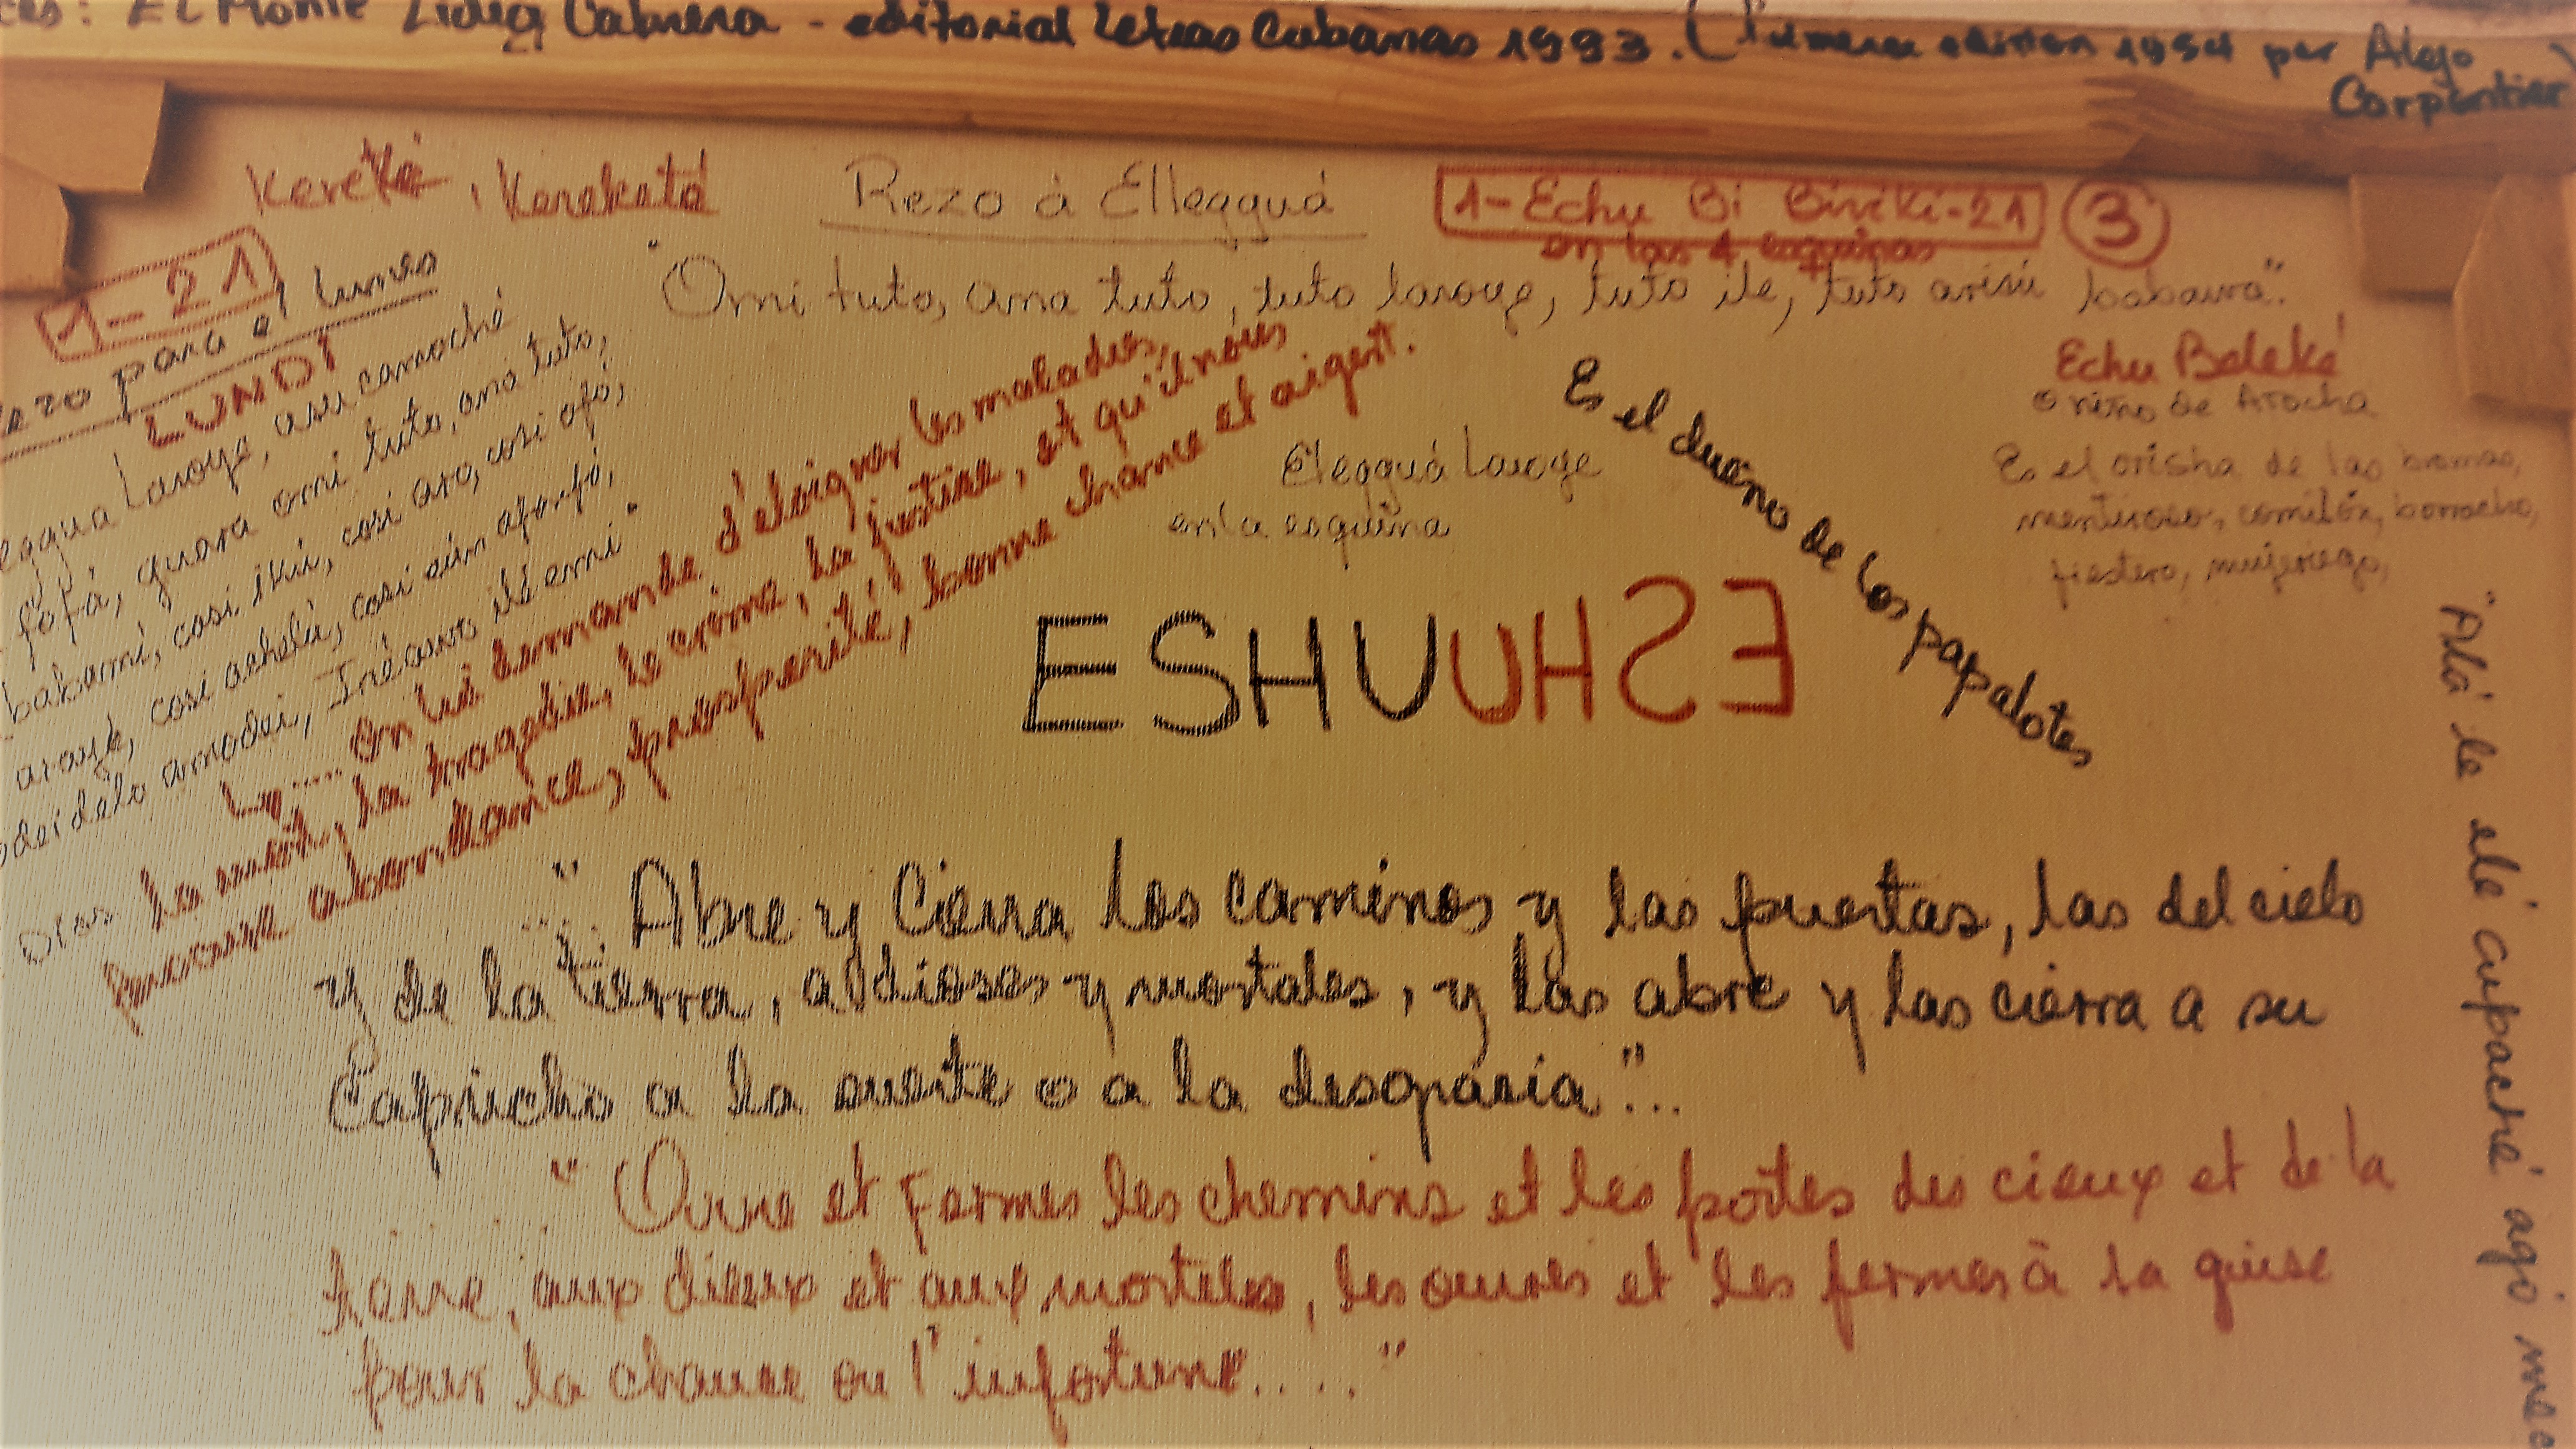 es: El Monte Lidia Cabrera - editorial Letras Cubanas 1993. (Primera edition 1954 por Alejo
Carpentier)
Kereké, Kerekété
Rezo à Elleggua
1-Echu Bi Biriki-21
3
en las 4 esquinas
"Omi tuto, ana tuto, tuto laroye, tuto ile, tuto arisú babawa".
1-21
ezo para el lunes
LUNDI
eggua Laroye, asu camaché
fofá, guara omi tuto, ana tuto,
babami, cosi ikú, cosi aro, cosi ofó,
arayé, cosi achelú, cosi eún afonfó,
amodei, Iréawo ilé emi".
on lui demande d'éloigner les maladies,
la mort, la tragedie, le crime, la justice, et qu'il nous
procure abondance, prosperité, bonne chance et argent.
Echu Beleké
o niño de Atocha
Es el orisha de las bromas,
mentiroso, comilón, borracho,
fiestero, mujeriego,
Elegguá Laroye
en la esquina
Es el dueño de los papalotes
ESHUUHSE
"Abre y Cierra los caminos y las puertas, las del cielo
y de la tierra, a dioses y mortales, y las abre y las cierra a su
Capricho a la suerte o a la desgracia"...
"Ouvre et Fermes les chemins et les portes des cieux et de la
terre, aux dieux et aux mortels, les ouvres et les fermes à sa guise
pour la chance ou l'infortune...."
"Alá le elé cupaché agó